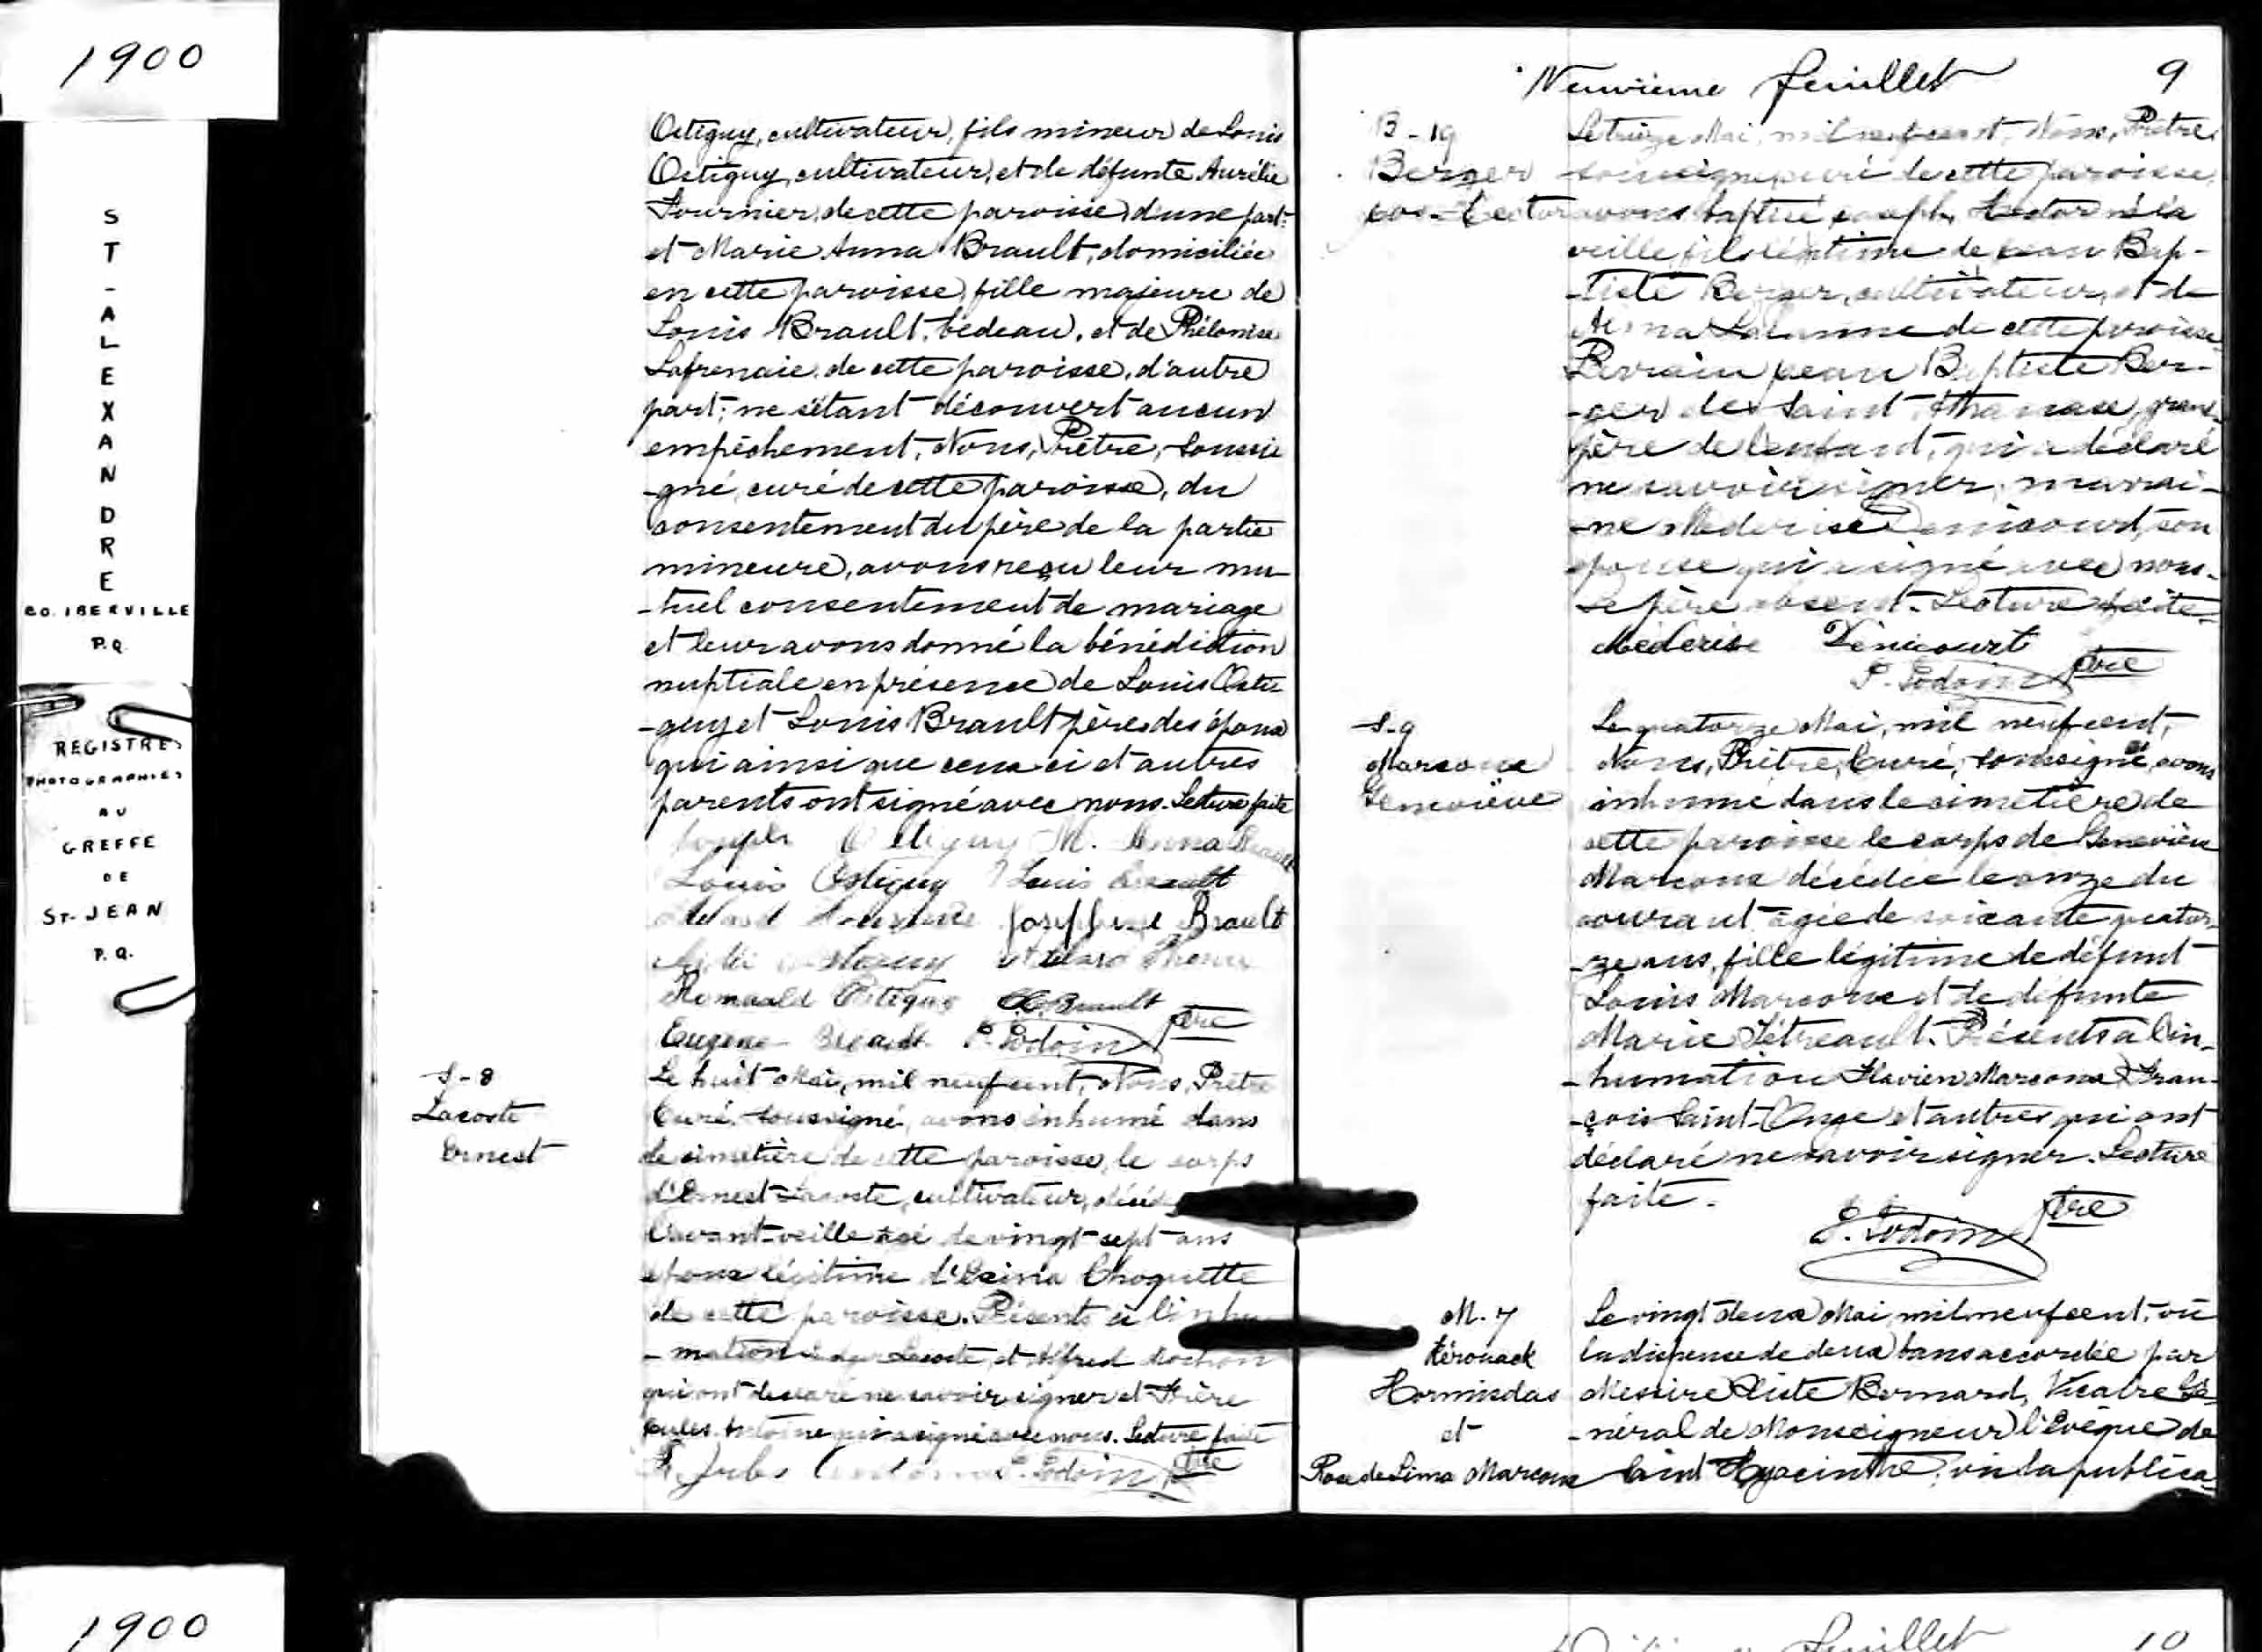 1900
ST-ALEXANDRE
CO. IBERVILLE
P.Q.
REGISTRES
PHOTOGRAPHIES
AU
GREFFE
DE
ST-JEAN
P.Q.
Ostiguy, cultivateur, fils mineur de Louis
Ostiguy, cultivateur, et de défunte Aurélie
Fournier, de cette paroisse, d'une part:
et Marie Anna Brault, domiciliée
en cette paroisse, fille majeure de
Louis Brault, bedeau, et de Phélonise
Lafrenaie, de cette paroisse, d'autre
part; ne s'étant découvert aucun
empêchement, Nous, Prêtre, soussi
-gné, curé de cette paroisse, du
consentement du père de la partie
mineure, avons reçu leur mu-
-tuel consentement de mariage
et leur avons donné la bénédiction
nuptiale en présence de Louis Osti
-guy et Louis Brault pères des époux
qui ainsi que ceux-ci et autres
parents ont signé avec nous. Lecture faite
Joseph Ostiguy M. Anna Brault
Louis Ostiguy Louis Brault
Josephine Brault
Ostiguy
Romuald Ostiguy Brault
Eugene Breault P. Lodoin Ptre
S-8
Lacoste
Ernest
Le huit Mai, mil neuf cent, Nous, Prêtre
Curé, soussigné, avons inhumé dans
le cimetière de cette paroisse, le corps
d'Ernest Lacoste, cultivateur, décédé
l'avant-veille âgé de vingt-sept ans
époux légitime d'Exina Choquette
de cette paroisse. Présents à l'inhu
-mation Lacoste, et Alfred Rochon
qui ont déclaré ne savoir signer et Frère
Jules Antoine qui a signé avec nous. Lecture faite
F. Jules P. Lodoin Ptre
Neuvième feuillet 9
B-19
Berger
Jos-Hector
Le treize Mai, mil neuf cent, Nous, Prêtre
soussigné, curé de cette paroisse,
avons baptisé Joseph, Hector né la
veille, fils légitime de Jean Bap-
-tiste Berger, cultivateur, et de
Lalanne de cette paroisse
Parrain Jean Baptiste Ber-
-ger de Saint Athanase, grand
père de l'enfant, qui a déclaré
ne savoir signer, marrai-
-ne Mederise Denicourt, son
épouse qui a signé avec nous.
Le père absent. Lecture faite
Méderise Dénicourt
P. Lodoin Ptre
S-9
Marcoux
Geneviève
Le quatorze Mai, mil neuf cent,
Nous, Prêtre, Curé, soussigné, avons
inhumé dans le cimetière de
cette paroisse le corps de Geneviève
Marcoux décédée le onze du
courant âgée de soixante quator-
-ze ans, fille légitime de défunt
Louis Marcoux et de défunte
Marie Tétreault. Présents à l'in-
-humation Flavien Marcoux, Fran-
-çois Saint-Onge et autres qui ont
déclaré ne savoir signer. Lecture
faite.
P. Lodoin Ptre
M. 7
Kérouack
Hormisdas
et
Rose de Lima Marcoux
Le vingt deux Mai, mil neuf cent, vu
la dispense de deux bans accordée par
Messire Aliste Bernard, Vicaire Gé
-néral de Monseigneur l'Evêque de
Saint Hyacinthe; vu la publica-
1900
feuillet 10